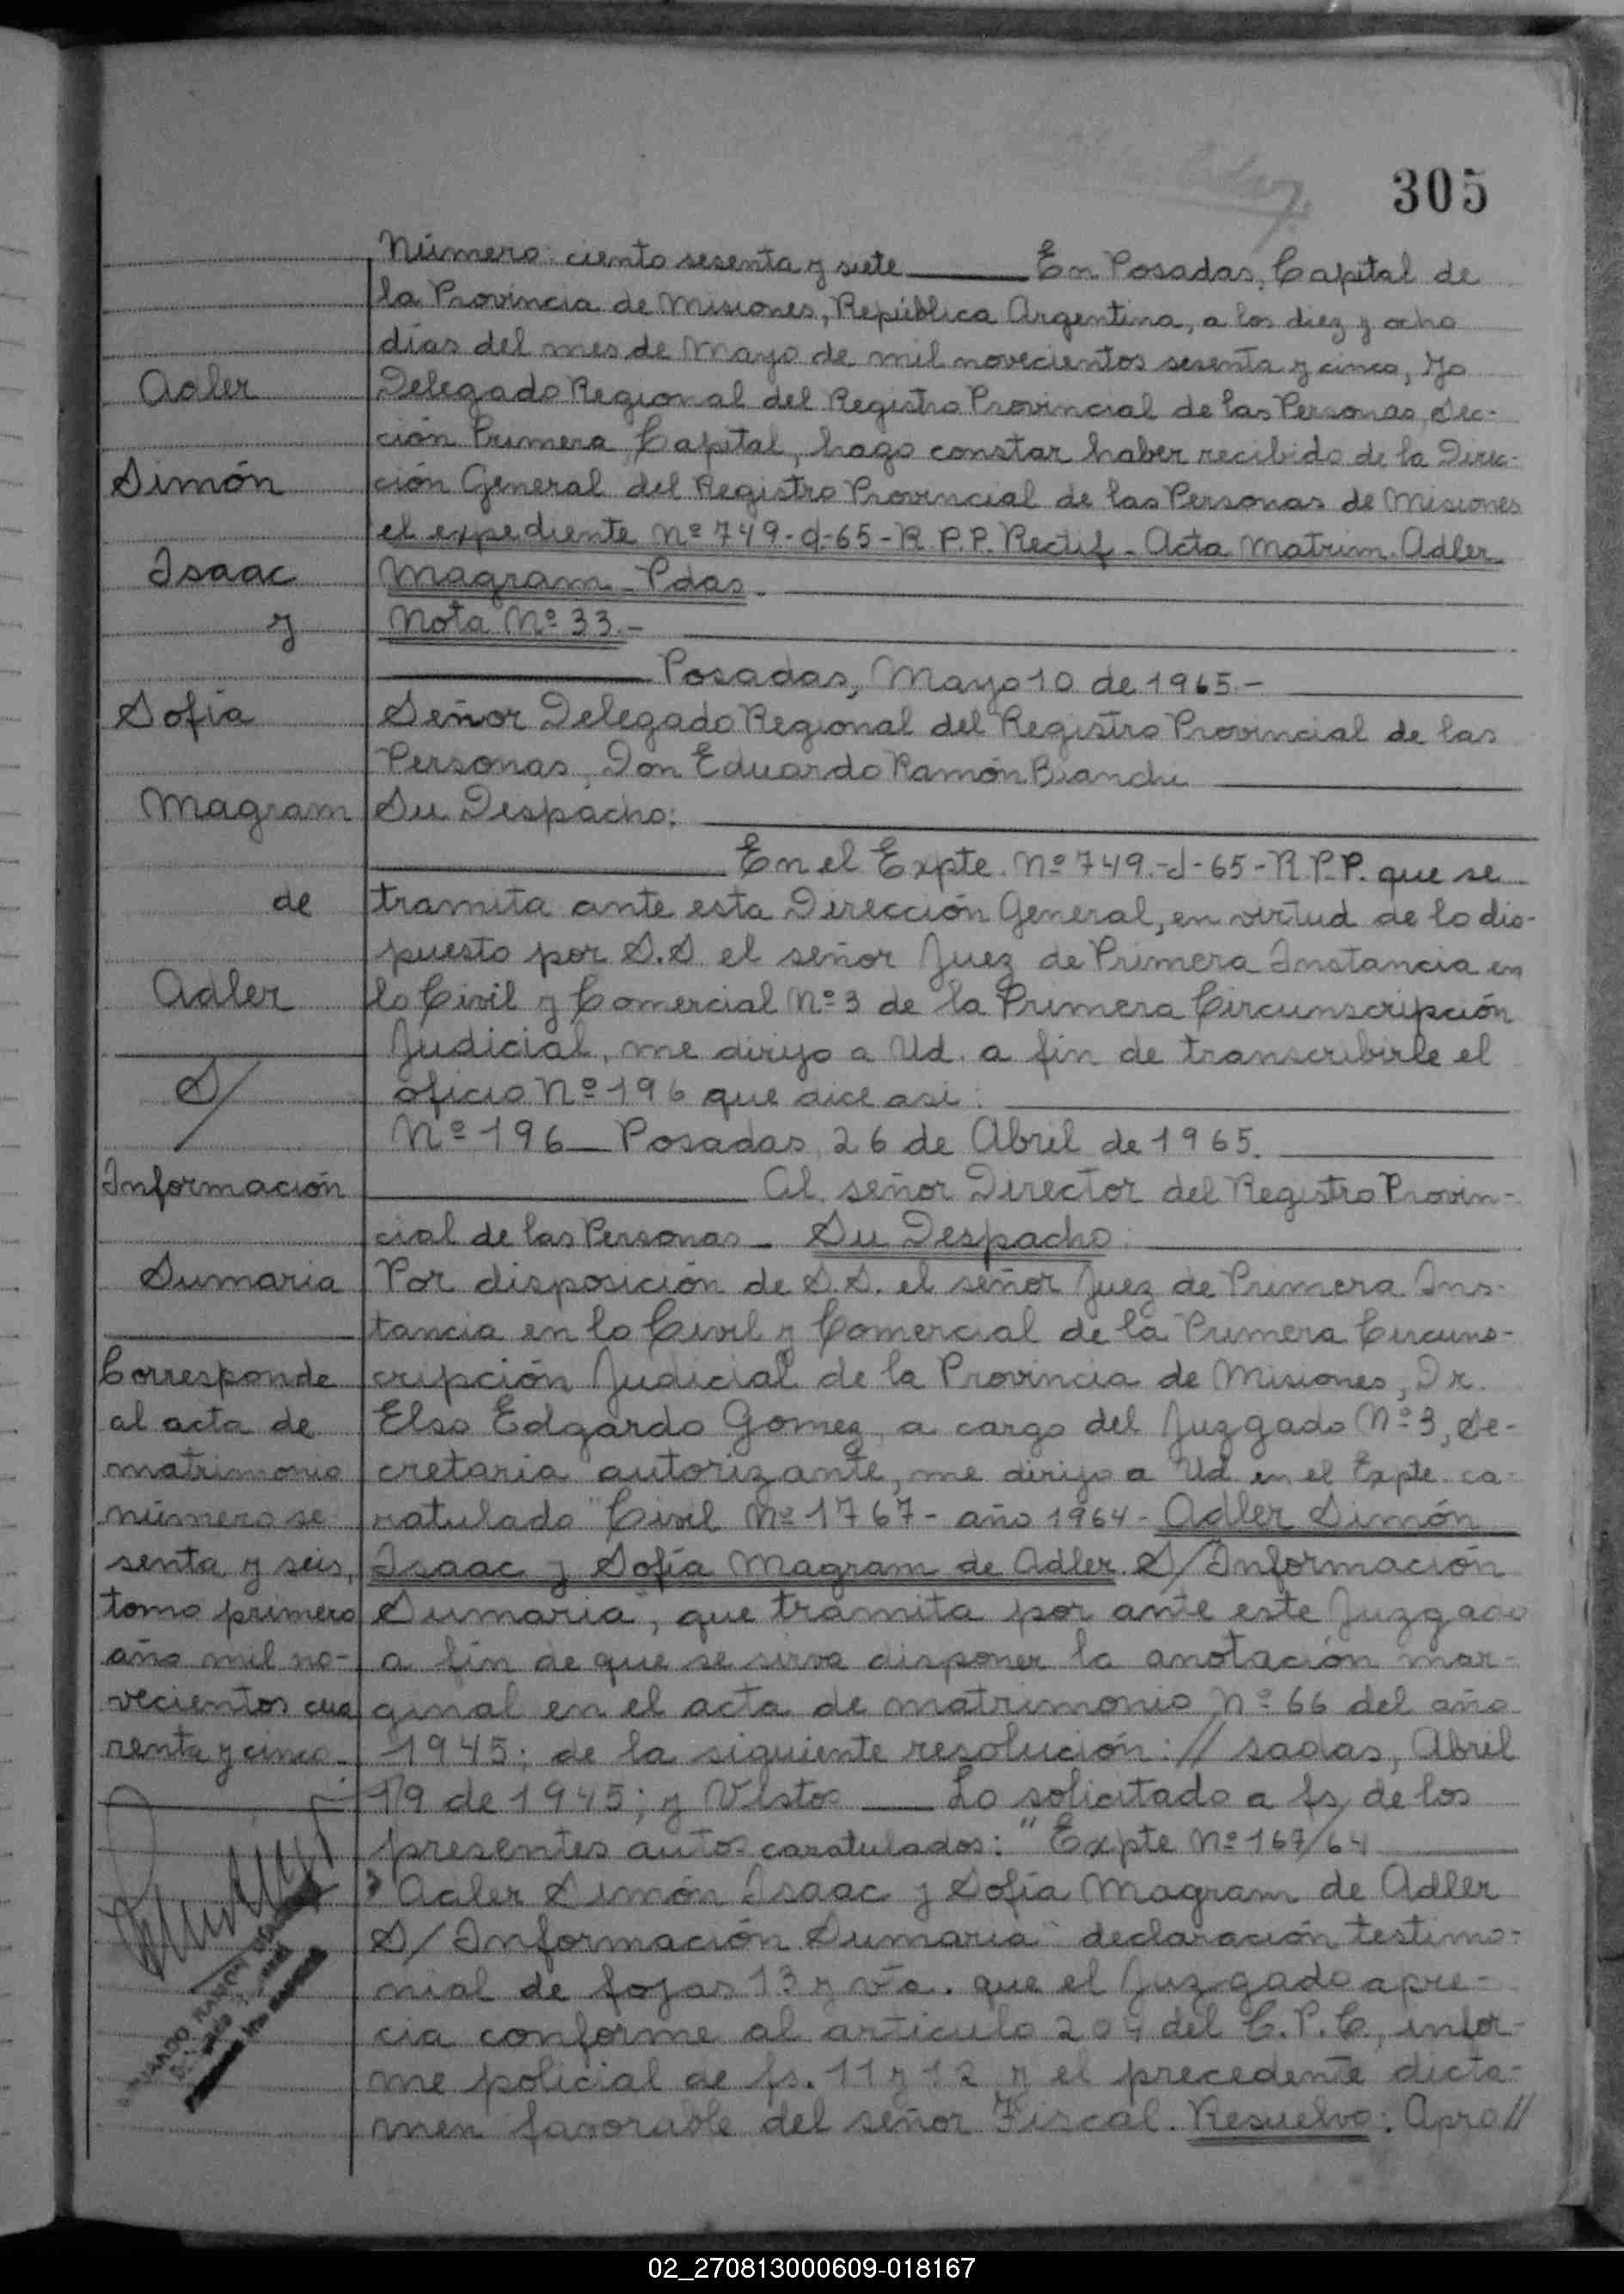 305
Número: ciento sesenta y siete En Posadas, Capital de
la Provincia de Misiones, República Argentina, a los diez y ocho
días del mes de Mayo de mil novecientos sesenta y cinco, Yo
Delegado Regional del Registro Provincial de las Personas, Sec-
ción Primera Capital, hago constar haber recibido de la Direc-
ción General del Registro Provincial de las Personas de Misiones
el expediente Nº 749-d-65-R.P.P. Rectif - Acta Matrim. Adler
Magram - Pdas.
Nota Nº 33.-
Posadas, Mayo 10 de 1965.-
Señor Delegado Regional del Registro Provincial de las
Personas, Don Eduardo Ramón Bianchi
Su Despacho:
En el Expte. Nº 749-d-65-R.P.P. que se
tramita ante esta Dirección General, en virtud de lo dis-
puesto por S.S. el señor Juez de Primera Instancia en
lo Civil y Comercial Nº 3 de la Primera Circunscripción
Judicial, me dirijo a Ud. a fin de transcribirle el
oficio Nº 196 que dice asi:
Nº 196 - Posadas, 26 de Abril de 1965.
Al señor Director del Registro Provin-
cial de las Personas - Su Despacho:
Por disposición de S.S. el señor Juez de Primera Ins-
tancia en lo Civil y Comercial de la Primera Circuns-
cripción Judicial de la Provincia de Misiones, Dr.
Elso Edgardo Gomez, a cargo del Juzgado Nº 3, Se-
cretaria autorizante, me dirijo a Ud. en el Expte. ca-
ratulado "Civil Nº 1767 - año 1964 - Adler Simón
Isaac y Sofía Magram de Adler S/Información
Sumaria", que tramita por ante este Juzgado
a fin de que se sirva disponer la anotación mar-
ginal en el acta de matrimonio Nº 66 del año
1945; de la siguiente resolución: // sadas, Abril
19 de 1945; y Vistos Lo solicitado a fs, de los
presentes autos caratulados: "Expte Nº 167/64
Adler Simón Isaac y Sofía Magram de Adler
S/Información Sumaria" declaración testimo-
nial de fojas 13 y vta. que el Juzgado apre-
cia conforme al articulo 204 del C.P.C., infor-
me policial de fs. 11 y 12 y el precedente dicta-
men favorable del señor Fiscal. Resuelvo: Apro//
Adler
Simón
Isaac
y
Sofía
Magram
de
Adler
S/
Información
Sumaria
Corresponde
al acta de
matrimonio
número se
senta y seis,
tomo primero
año mil no-
vecientos cua
renta y cinco.
02_270813000609-018167